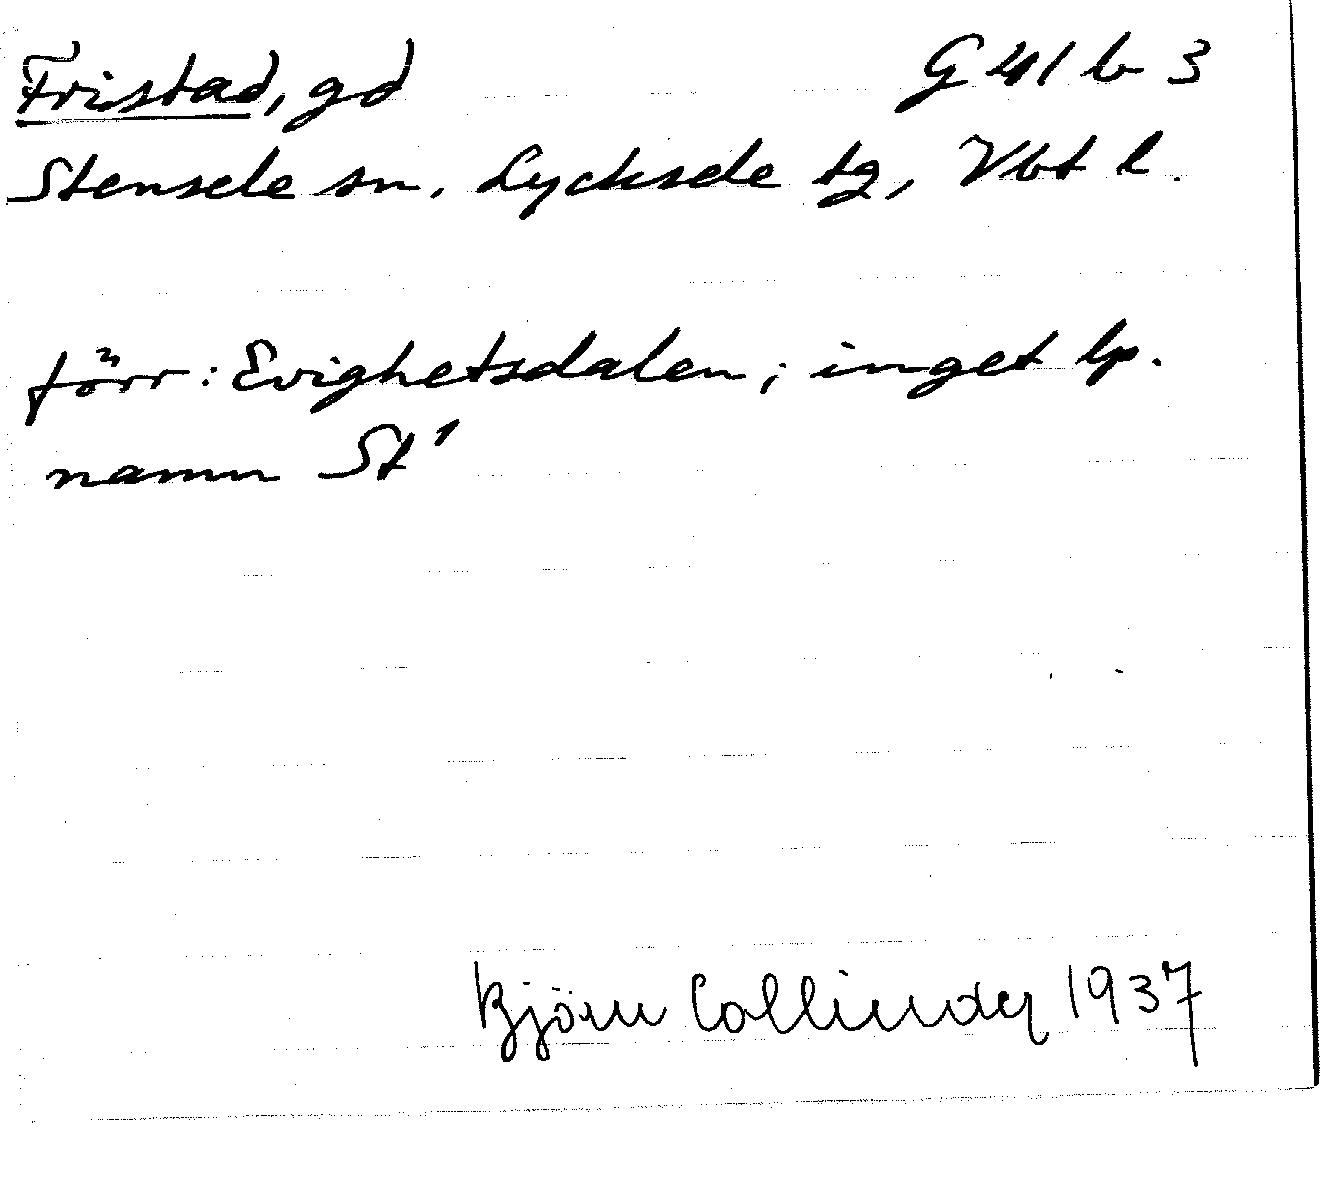 Fristad, gd G 41 b 3
Stensele sn. Lycksele tg, Vbt l.
förr: Evighetsdalen; inget lp.
namn St¹
Björn Collinder 1937